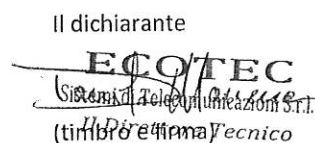 Il dichiarante
ECOTEC
Sistemi di Telecomunicazioni S.r.l.
Il Direttore Tecnico
(timbro e firma)